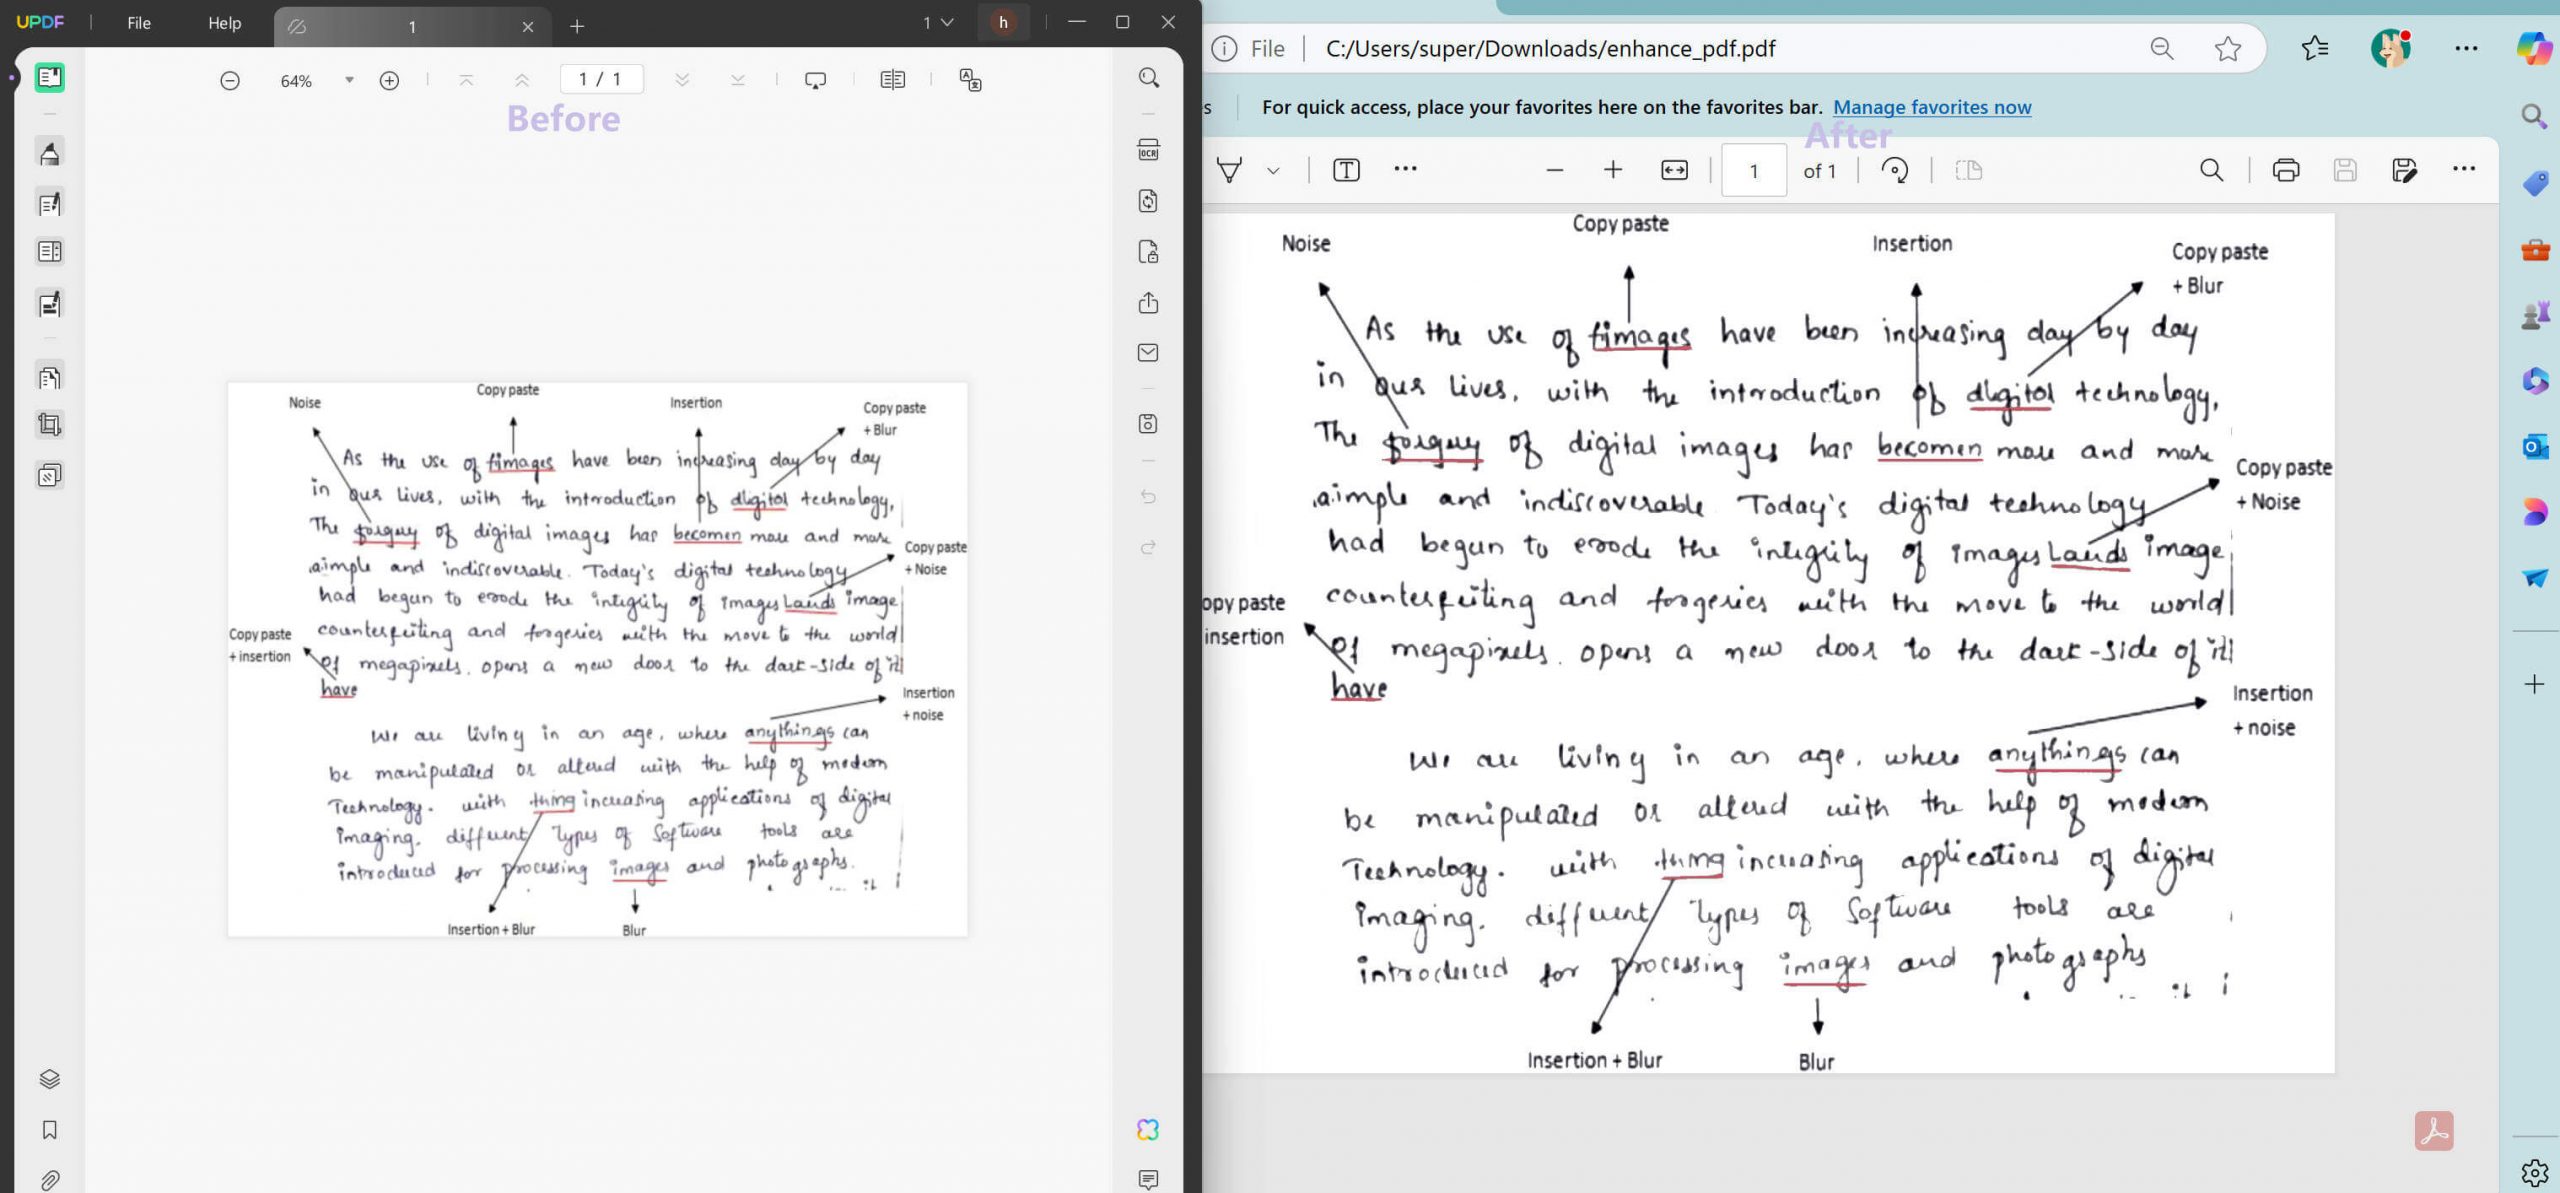 UPDF
File
Help
1
1
h
64%
1 / 1
Before
OCR
Noise
Copy paste
Insertion
Copy paste
+ Blur
As the use of fimages have been increasing day by day
in our lives, with the introduction of digital technology,
The forgery of digital images has becomen more and more
simple and indiscoverable. Today's digital technology
Copy paste
+ Noise
had begun to erode the integrity of images Lauds image
counterfeiting and forgeries with the move to the world
Copy paste
+ insertion
of megapixels. opens a new door to the dark-side of it
have
Insertion
+ noise
We are living in an age, where anythings can
be manipulated or altered with the help of modern
Technology. with thing increasing applications of digital
imaging. different types of Software tools are
introduced for processing images and photographs.
Insertion + Blur
Blur
File
C:/Users/super/Downloads/enhance_pdf.pdf
s
For quick access, place your favorites here on the favorites bar. Manage favorites now
After
1 of 1
Noise
Copy paste
Insertion
Copy paste
+ Blur
As the use of fimages have been increasing day by day
in our lives, with the introduction of digital technology,
The forgery of digital images has becomen more and more
simple and indiscoverable Today's digital technology
Copy paste
+ Noise
had begun to erode the integrity of images Lauds image
counterfeiting and forgeries with the move to the world
opy paste
insertion
of megapixels. opens a new door to the dark-side of it
have
Insertion
+ noise
We are living in an age, where anythings can
be manipulated or altered with the help of modern
Technology. with thing increasing applications of digital
imaging. different types of Software tools are
introduced for processing images and photographs
Insertion + Blur
Blur